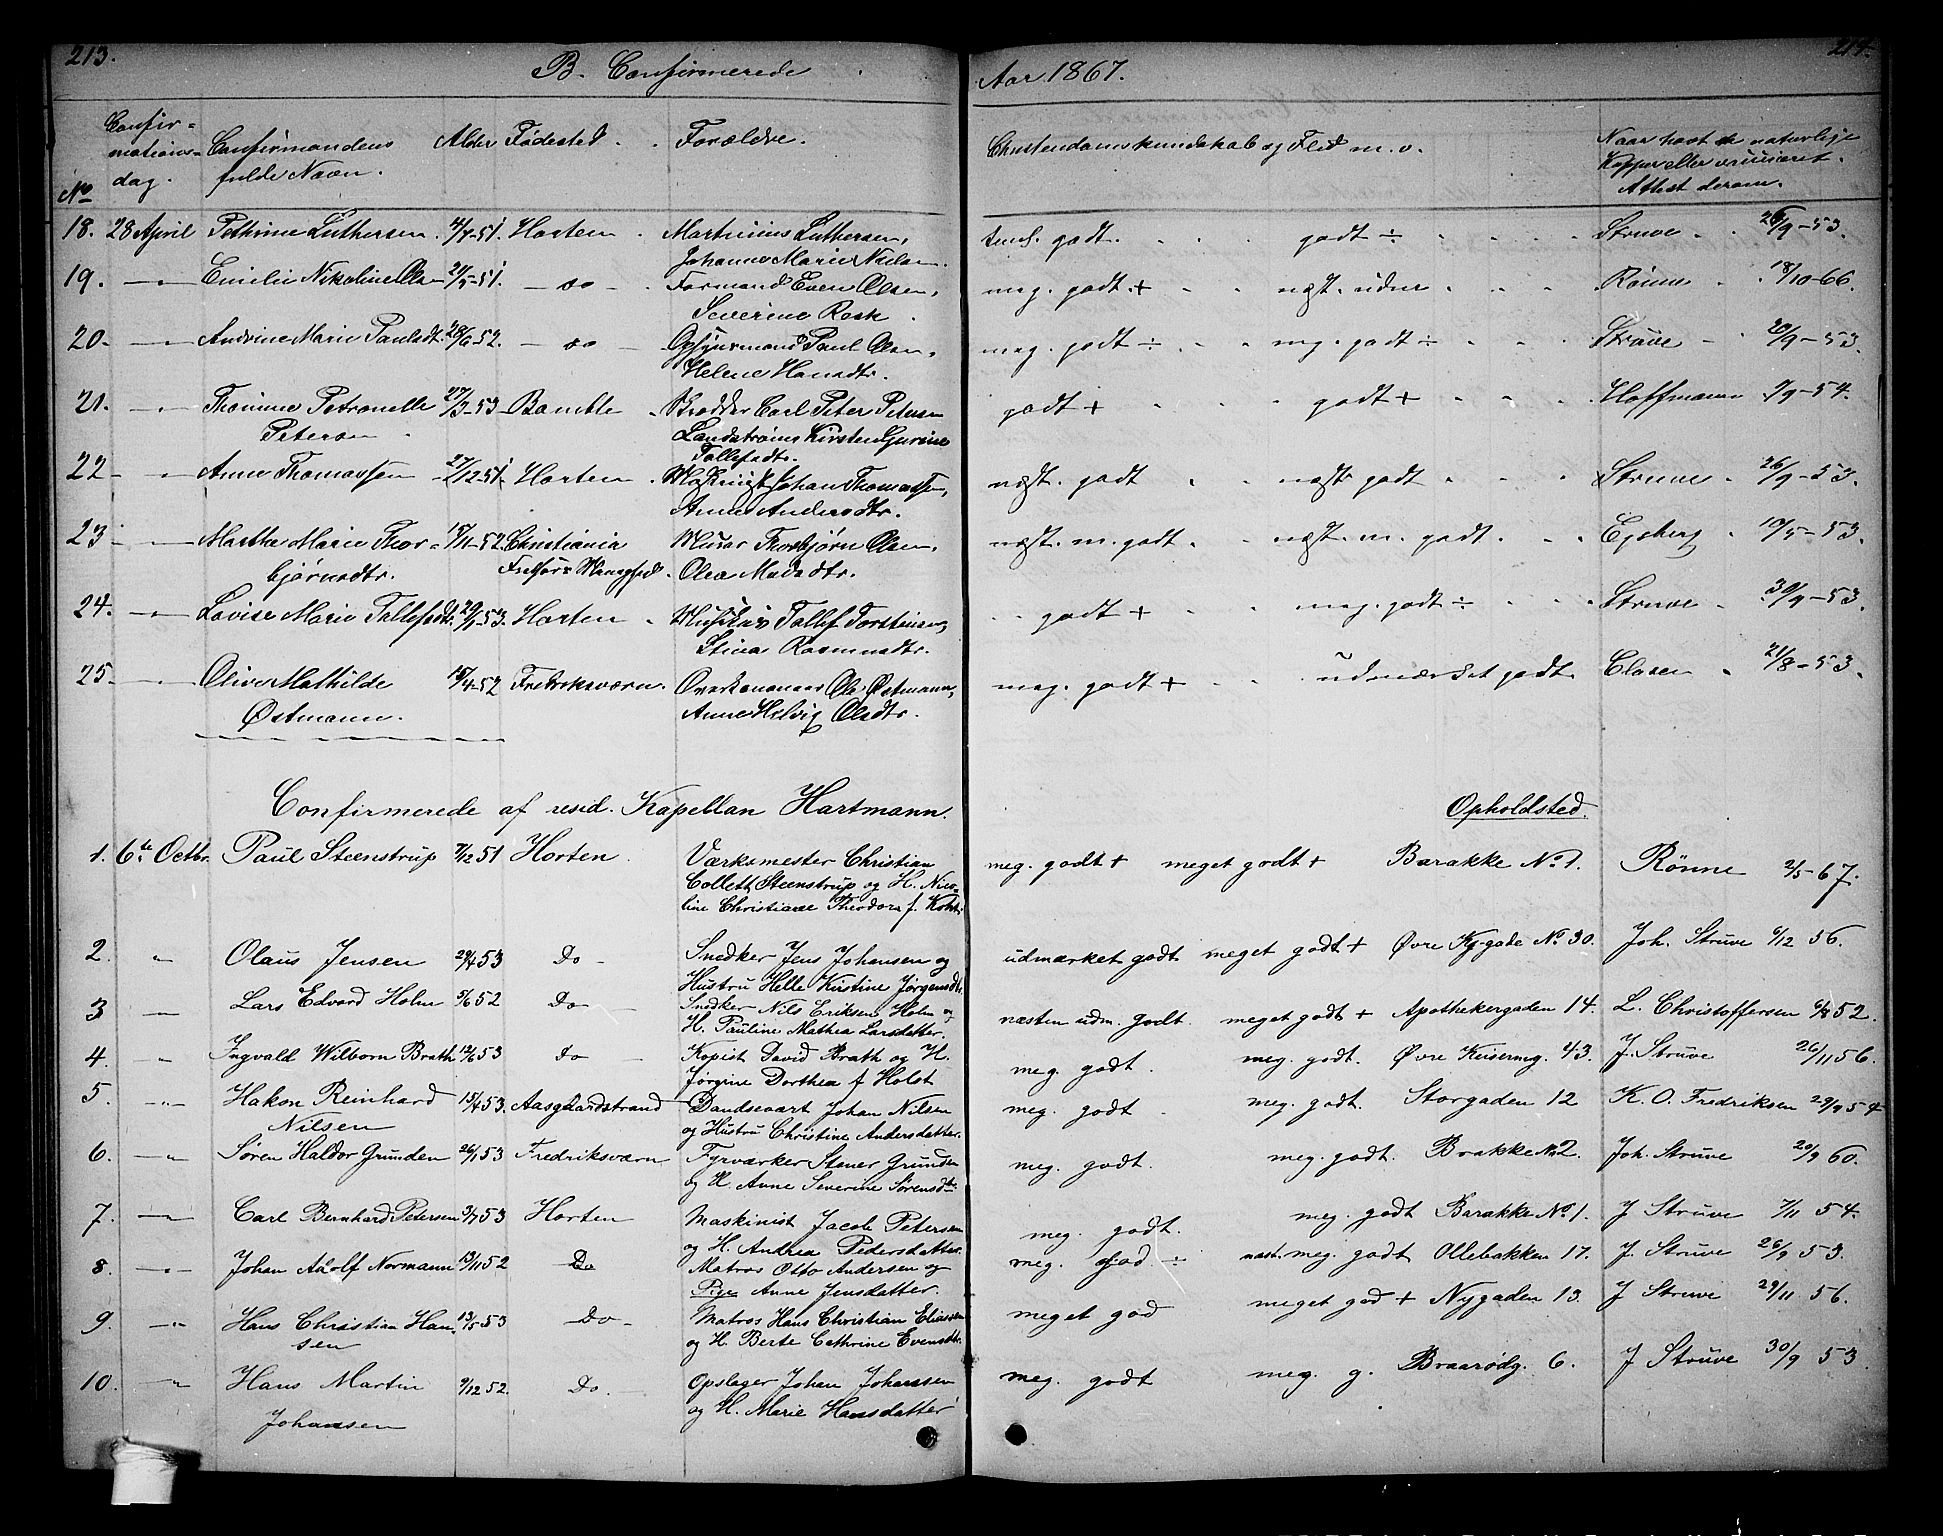 213.
B. Confirmerede
Aar 1867.
214.
No
Confir-
mations-
dag.
Confirmandens
fulde Navn.
Alder
Fødested.
Forældre.
Christendomskundskab og Flid m. v.
Naar havt de naturlige
Kopper eller vaccineret.
Attest derom.
18. 28 April Pethrine Luthersen. 4/7-51. Horten. Martinius Luthersen, temml. godt. godt ÷ Struve 26/9-53.
Johanne Marie Nielsen.
19. -"- Emilie Nikoline Olsen 27/5-51. -do- Formand Even Olsen, meg. godt. + næst. udm. Rønne 18/10-66.
Severine Rask.
20. -"- Andrine Marie Paulsdt. 28/6-52. -do- Opsynsmand Paul Olsen, meg. godt ÷ mg. godt ÷ Struve 20/9-53.
Helene Hansdtr.
21. -"- Thomine Petronelle 27/3-53. Bamble Skrædder Carl Peter Petersen godt + godt + Hoffmann 7/9-54.
Petersen Landstrøms Kirsten Gurine
Tollefsdtr.
22 -"- Anne Thomassen 27/12-51. Horten. Maskinist Johan Thomassen, næst. godt næst godt Struve 26/9-53.
Anne Andersdtr.
23 -"- Marthe Marie Thor- 15/11-52 Christiania Murer Thorbjørn Olsen, næst. m. godt. næst. m. godt. Egeberg 10/5-53.
bjørnsdtr. Frelsers Menighed. Olea Madsdtr.
24. -"- Lovise Marie Tollefsdt. 29/1-53. Horten Musikus Tollef Torstensen, godt + meg. godt ÷ Struve 30/9-53.
Stina Rasmusdtr.
25. -"- Olive Mathilde 15/4-52 Fredriksværn. Overkanoneer Ole Østmann, meg. godt + udmærket godt. Clasen 21/8-53.
Østmann. Anne Helvig Olsdtr.
Confirmerede af resid. Kapellan Hartmann.
Opholdsted.
1. 6te Octbr. Paul Steenstrup 7/12 51 Horten. Værksmester Christian meg. godt + meget godt + Barakke No 1. Rønne 2/5-67.
Collett Steenstrup og H. Nico-
line Christiane Theodora f.
2. " Olaus Jensen 29/4 53 Do - Snedker Jens Johansen og udmærket godt meget godt + Øvre Kg-gade No 30. Joh. Struve 6/12 56.
Hustru Helle Kirstine Jørgensdtr.
3 -"- Lars Edvard Holm 5/6 52 Do - Snedker Nils Eriksen Holm og næsten udm. godt. meget godt + Apothekergaden 14. L. Christoffersen 6/8 52.
H. Pauline Mathea Larsdatter.
4. -"- Ingvald Wilborn Brath 12/6 53 Do - Kopist David Brath og H. meg. godt meg. godt. Øvre Keiserveg. 43. J. Struve 26/11 56.
Jørgine Dorthea f Holst
5. -"- Hakon Reinhard 15/4 53. Aasgaardstrand Dandsevært Johan Nilsen meg. godt meg. godt. Storgaden 12 K. O. Fredriksen 29/9 54
Nilsen og Hustru Christine Andersdatter.
6. -"- Søren Haldor Grunden 26/1 53 Fredriksværn Fyrværker Stener Grunden meg. godt. meg. godt. Brakke No 2. Joh. Struve 20/9 60.
og H. Anne Severine Sørensdtr.
7. -"- Carl Bernhard Petersen 3/7 53 Horten Maskinist Jacob Petersen meg. godt. meg. godt Barakke No 1. J Struve 7/11 54.
og H. Andrea Pedersdatter.
8. -"- Johan Adolf Normann 13/11 52 Do Matros Otto Andersen og meg. God ÷ næst. meg. godt Ollebakken 17. J. Struve 26/9 53.
Pige Anne Jensdatter.
9. -"- Hans Christian Han- 13/5 53 -Do- Matros Hans Christian Eliassen meget god meget god + Nygaden 13. J Struve 29/11 56.
sen og H. Berte Cathrine Evensdtr.
10. -"- Hans Martin 9/12 52. Do. Opslager Johan Johanssen meg. godt meg. g. Braarødg. 6. J Struve 30/9 53.
Johansen og H. Marie Hansdatter